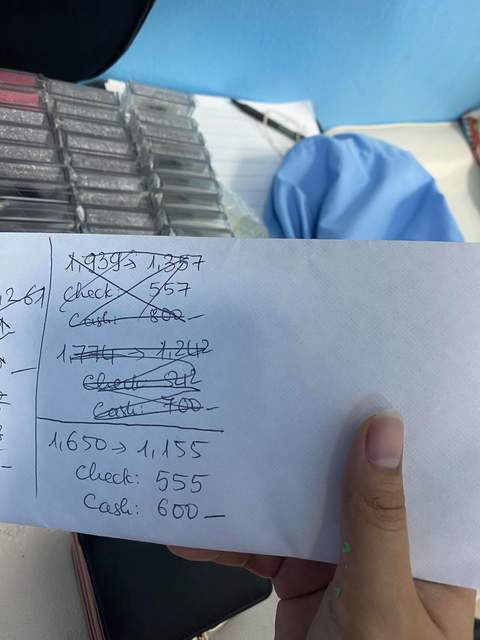 ,261
1,939 → 1,357
Check 557
Cash: 800 —
1,774 → 1,242
Check: 542
Cash: 700 —
1,650 → 1,155
Check: 555
Cash: 600 —